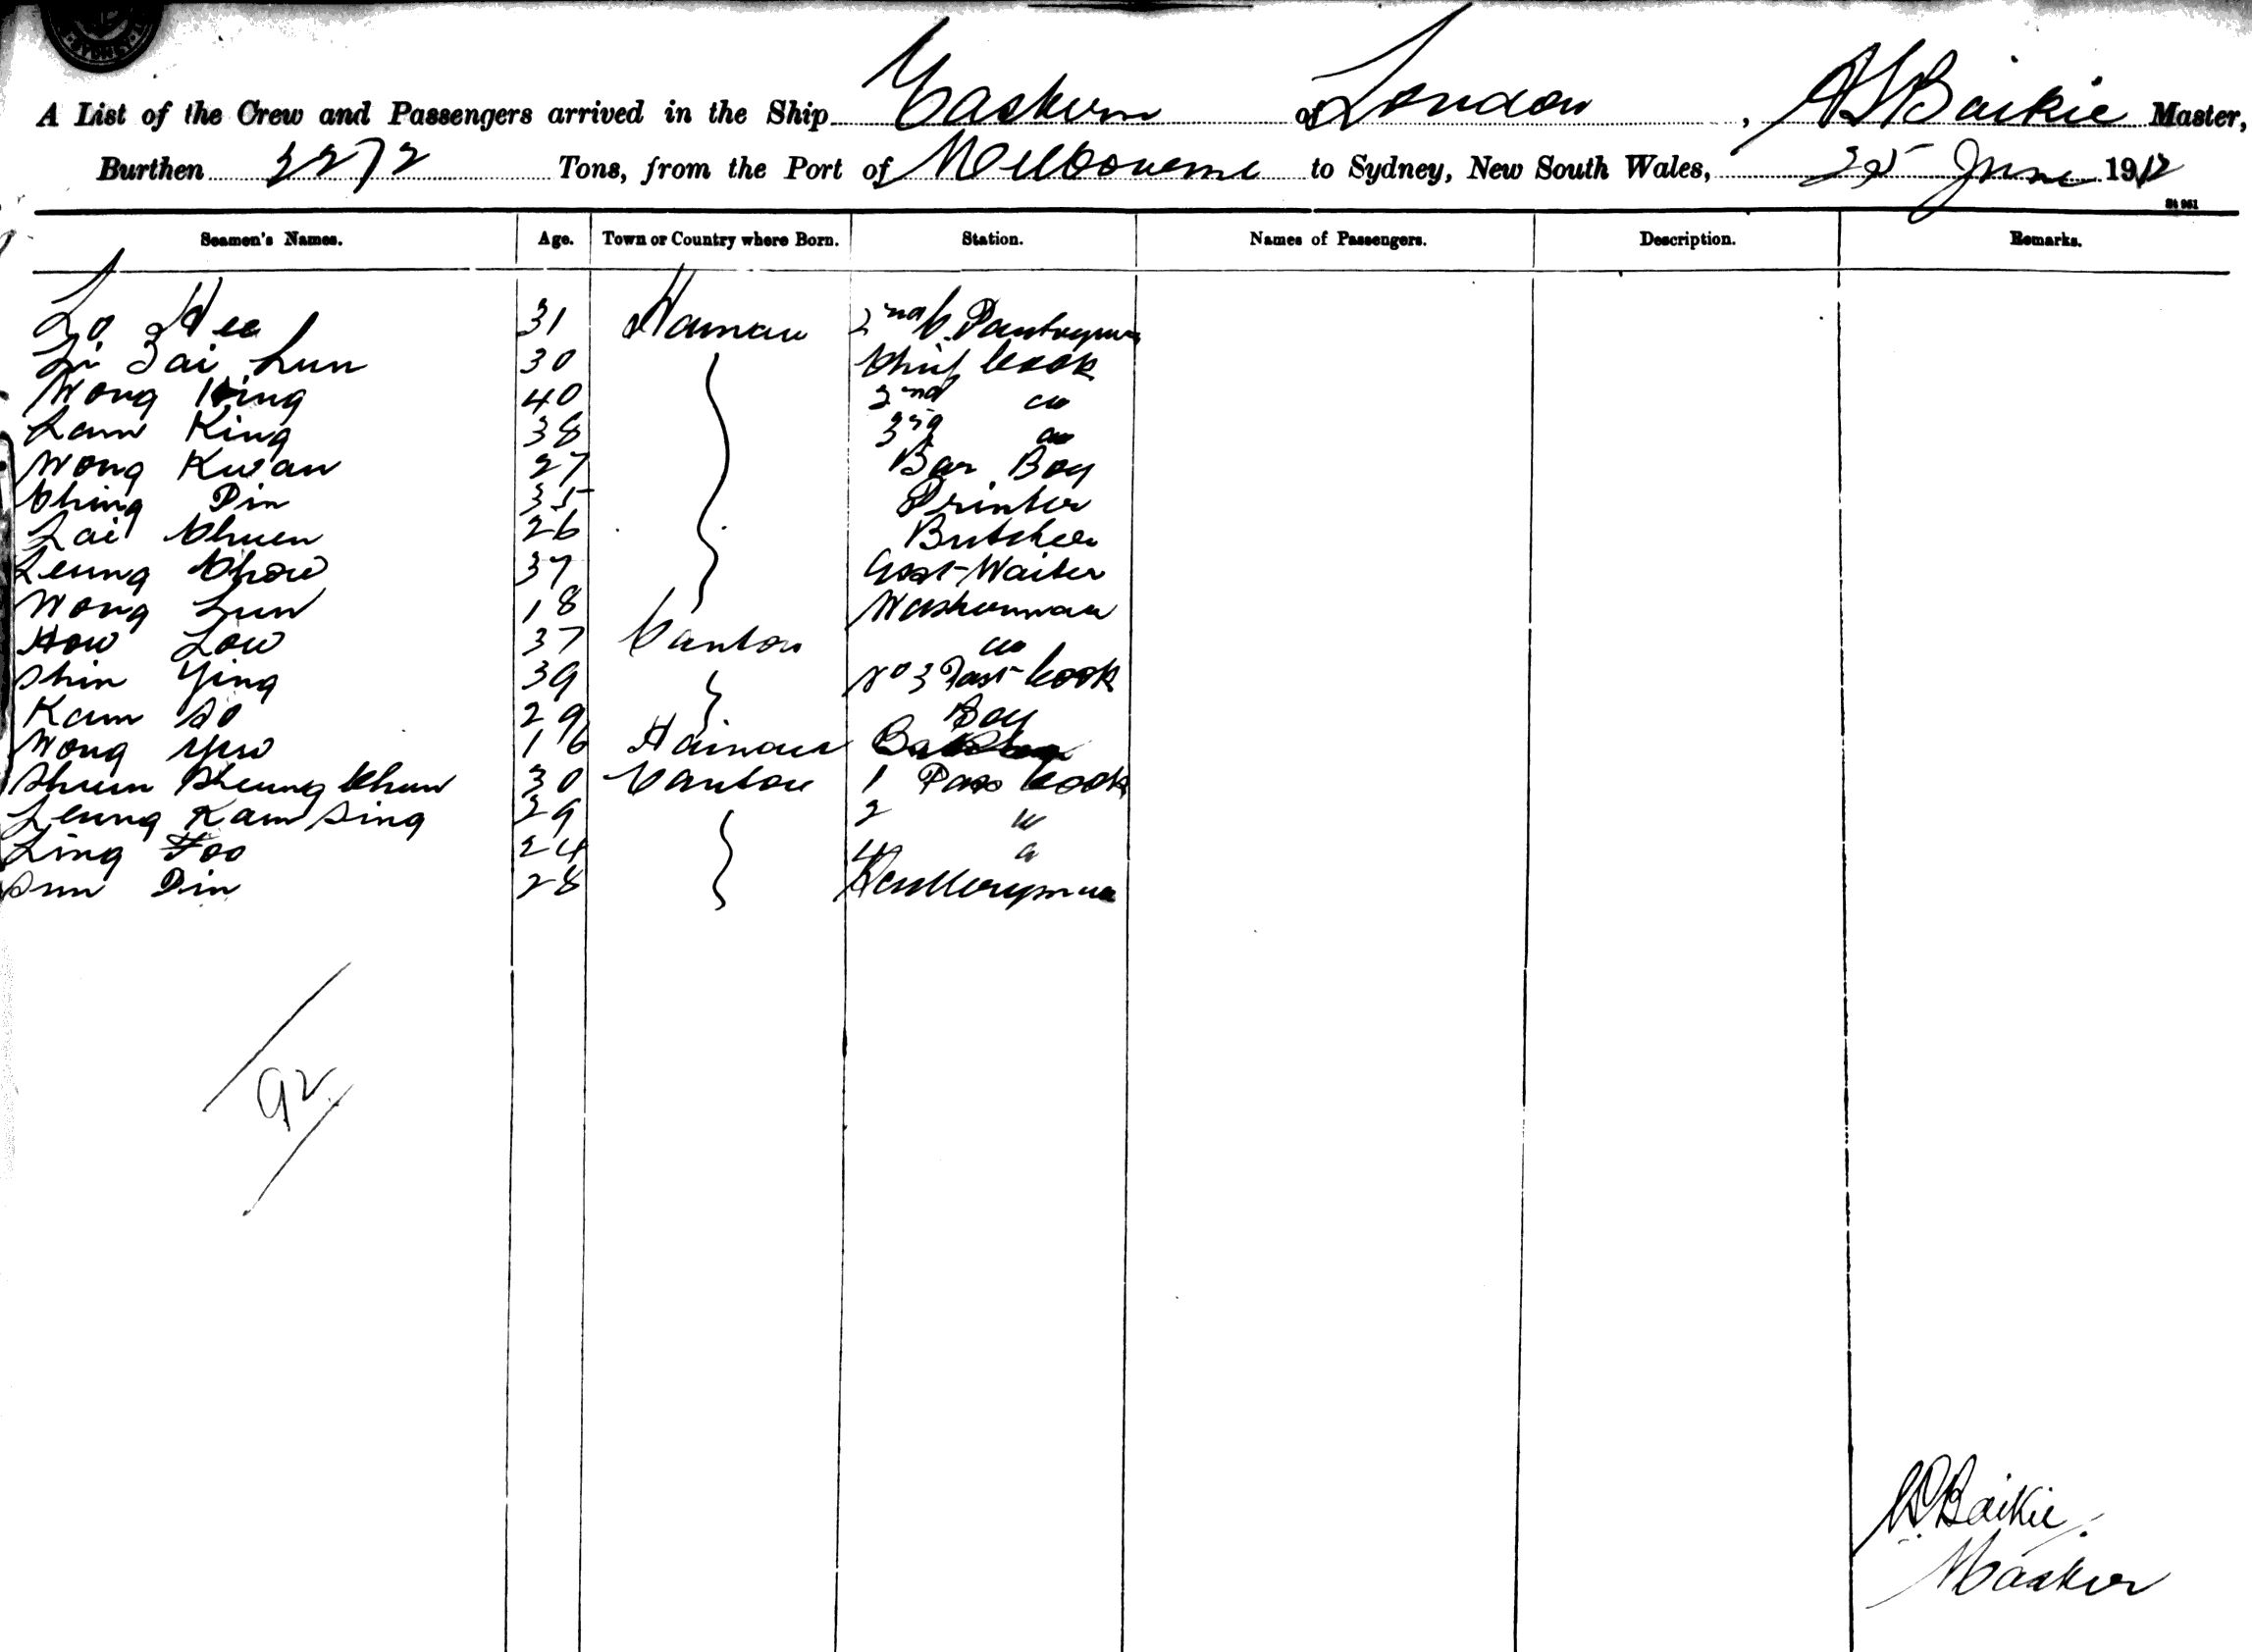 SYDNEY
A List of the Crew and Passengers arrived in the Ship Eastern of London, Baikie Master,
Burthen 2272 Tons, from the Port of Melbourne to Sydney, New South Wales, 25 June 1912
St 961
Seamen's Names. Age. Town or Country where Born. Station. Names of Passengers. Description. Remarks.
Lo Hee 31 Hainan 2nd C. Pantryman
Li Tai Lun 30 Chief Cook
Wong King 40 2nd do
Lam King 38 3rd do
Wong Kwan 27 Bar Boy
Ching Pin 35 Printer
Lai Chuen 26 Butcher
Leung Chow 37 Asst Waiter
Wong Lun 18 Washerman
How Low 37 Canton do
Shin Ying 39 No 3 Cook
Kam So 29 Boy
Wong Yew 16 Hainan
Shum Sheung Chun 30 Canton 1 Pass Cook
Leung Kam Sing 29 2 "
Ling Foo 24 4 "
Sun Pin 28 Sculleryman
92
Baikie
Master